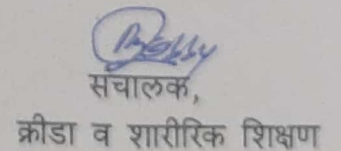 संचालक,
क्रीडा व शारीरिक शिक्षण